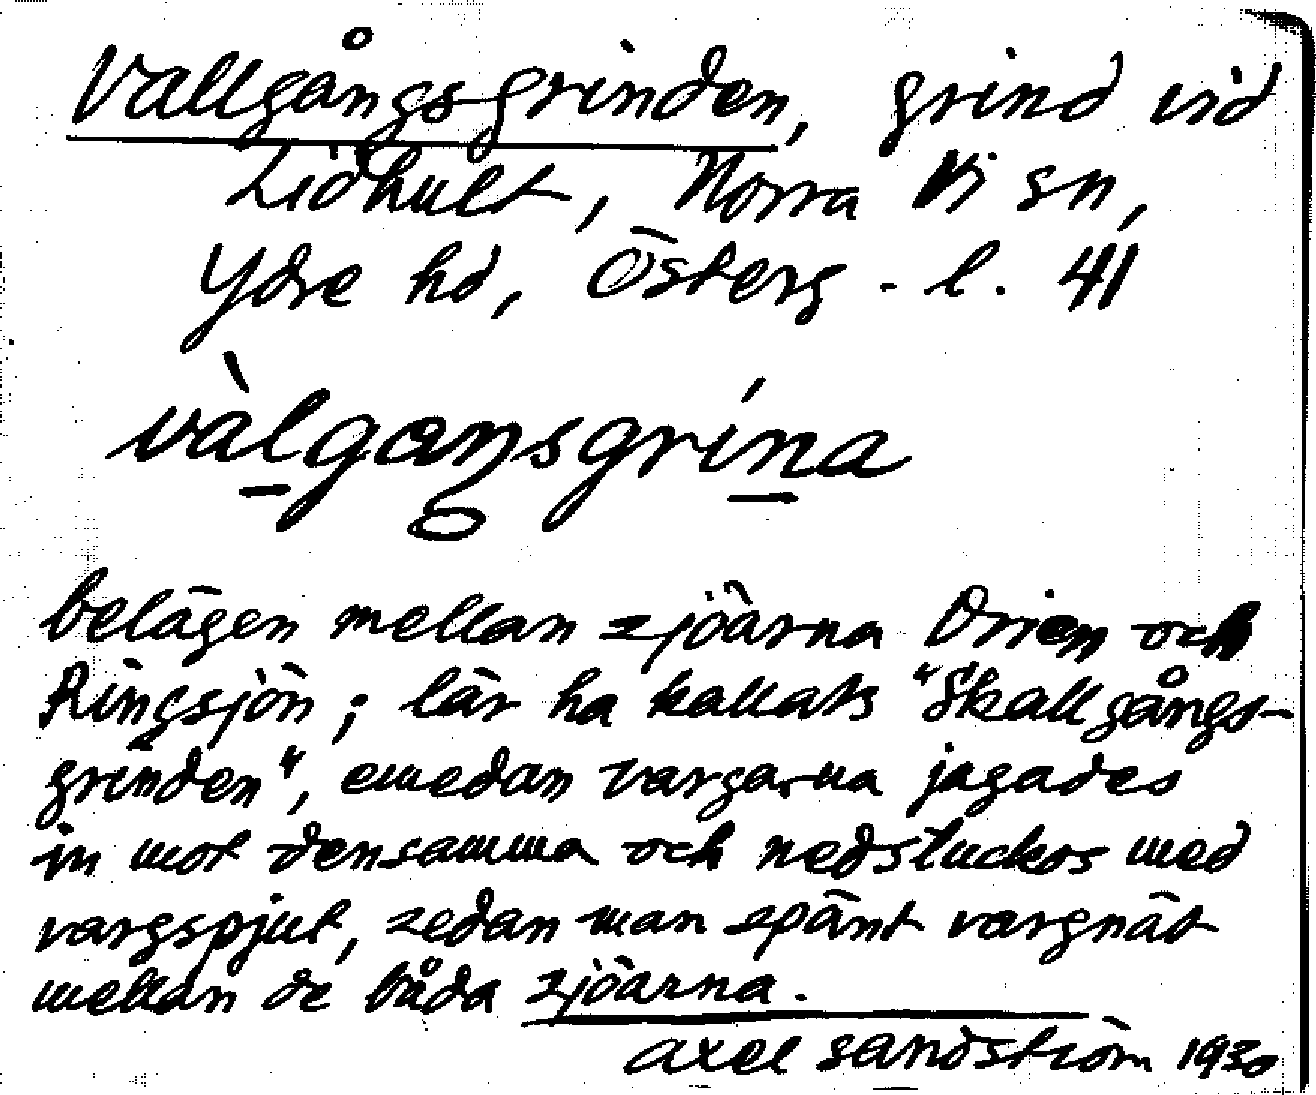 Vallgångsgrinden, grind vid
Lidhult, Norra Vi sn,
Ydre hd, Österg. l. 41
vàlgaŋsgrína
belägen mellan sjöarna Drien och
Ringsjön; lär ha kallats "Skallgångs-
grinden", emedan vargarna jagades
in mot densamma och nedstuckos med
vargspjut, sedan man spänt vargnät
mellan de båda sjöarna.
Axel Sandström 1930